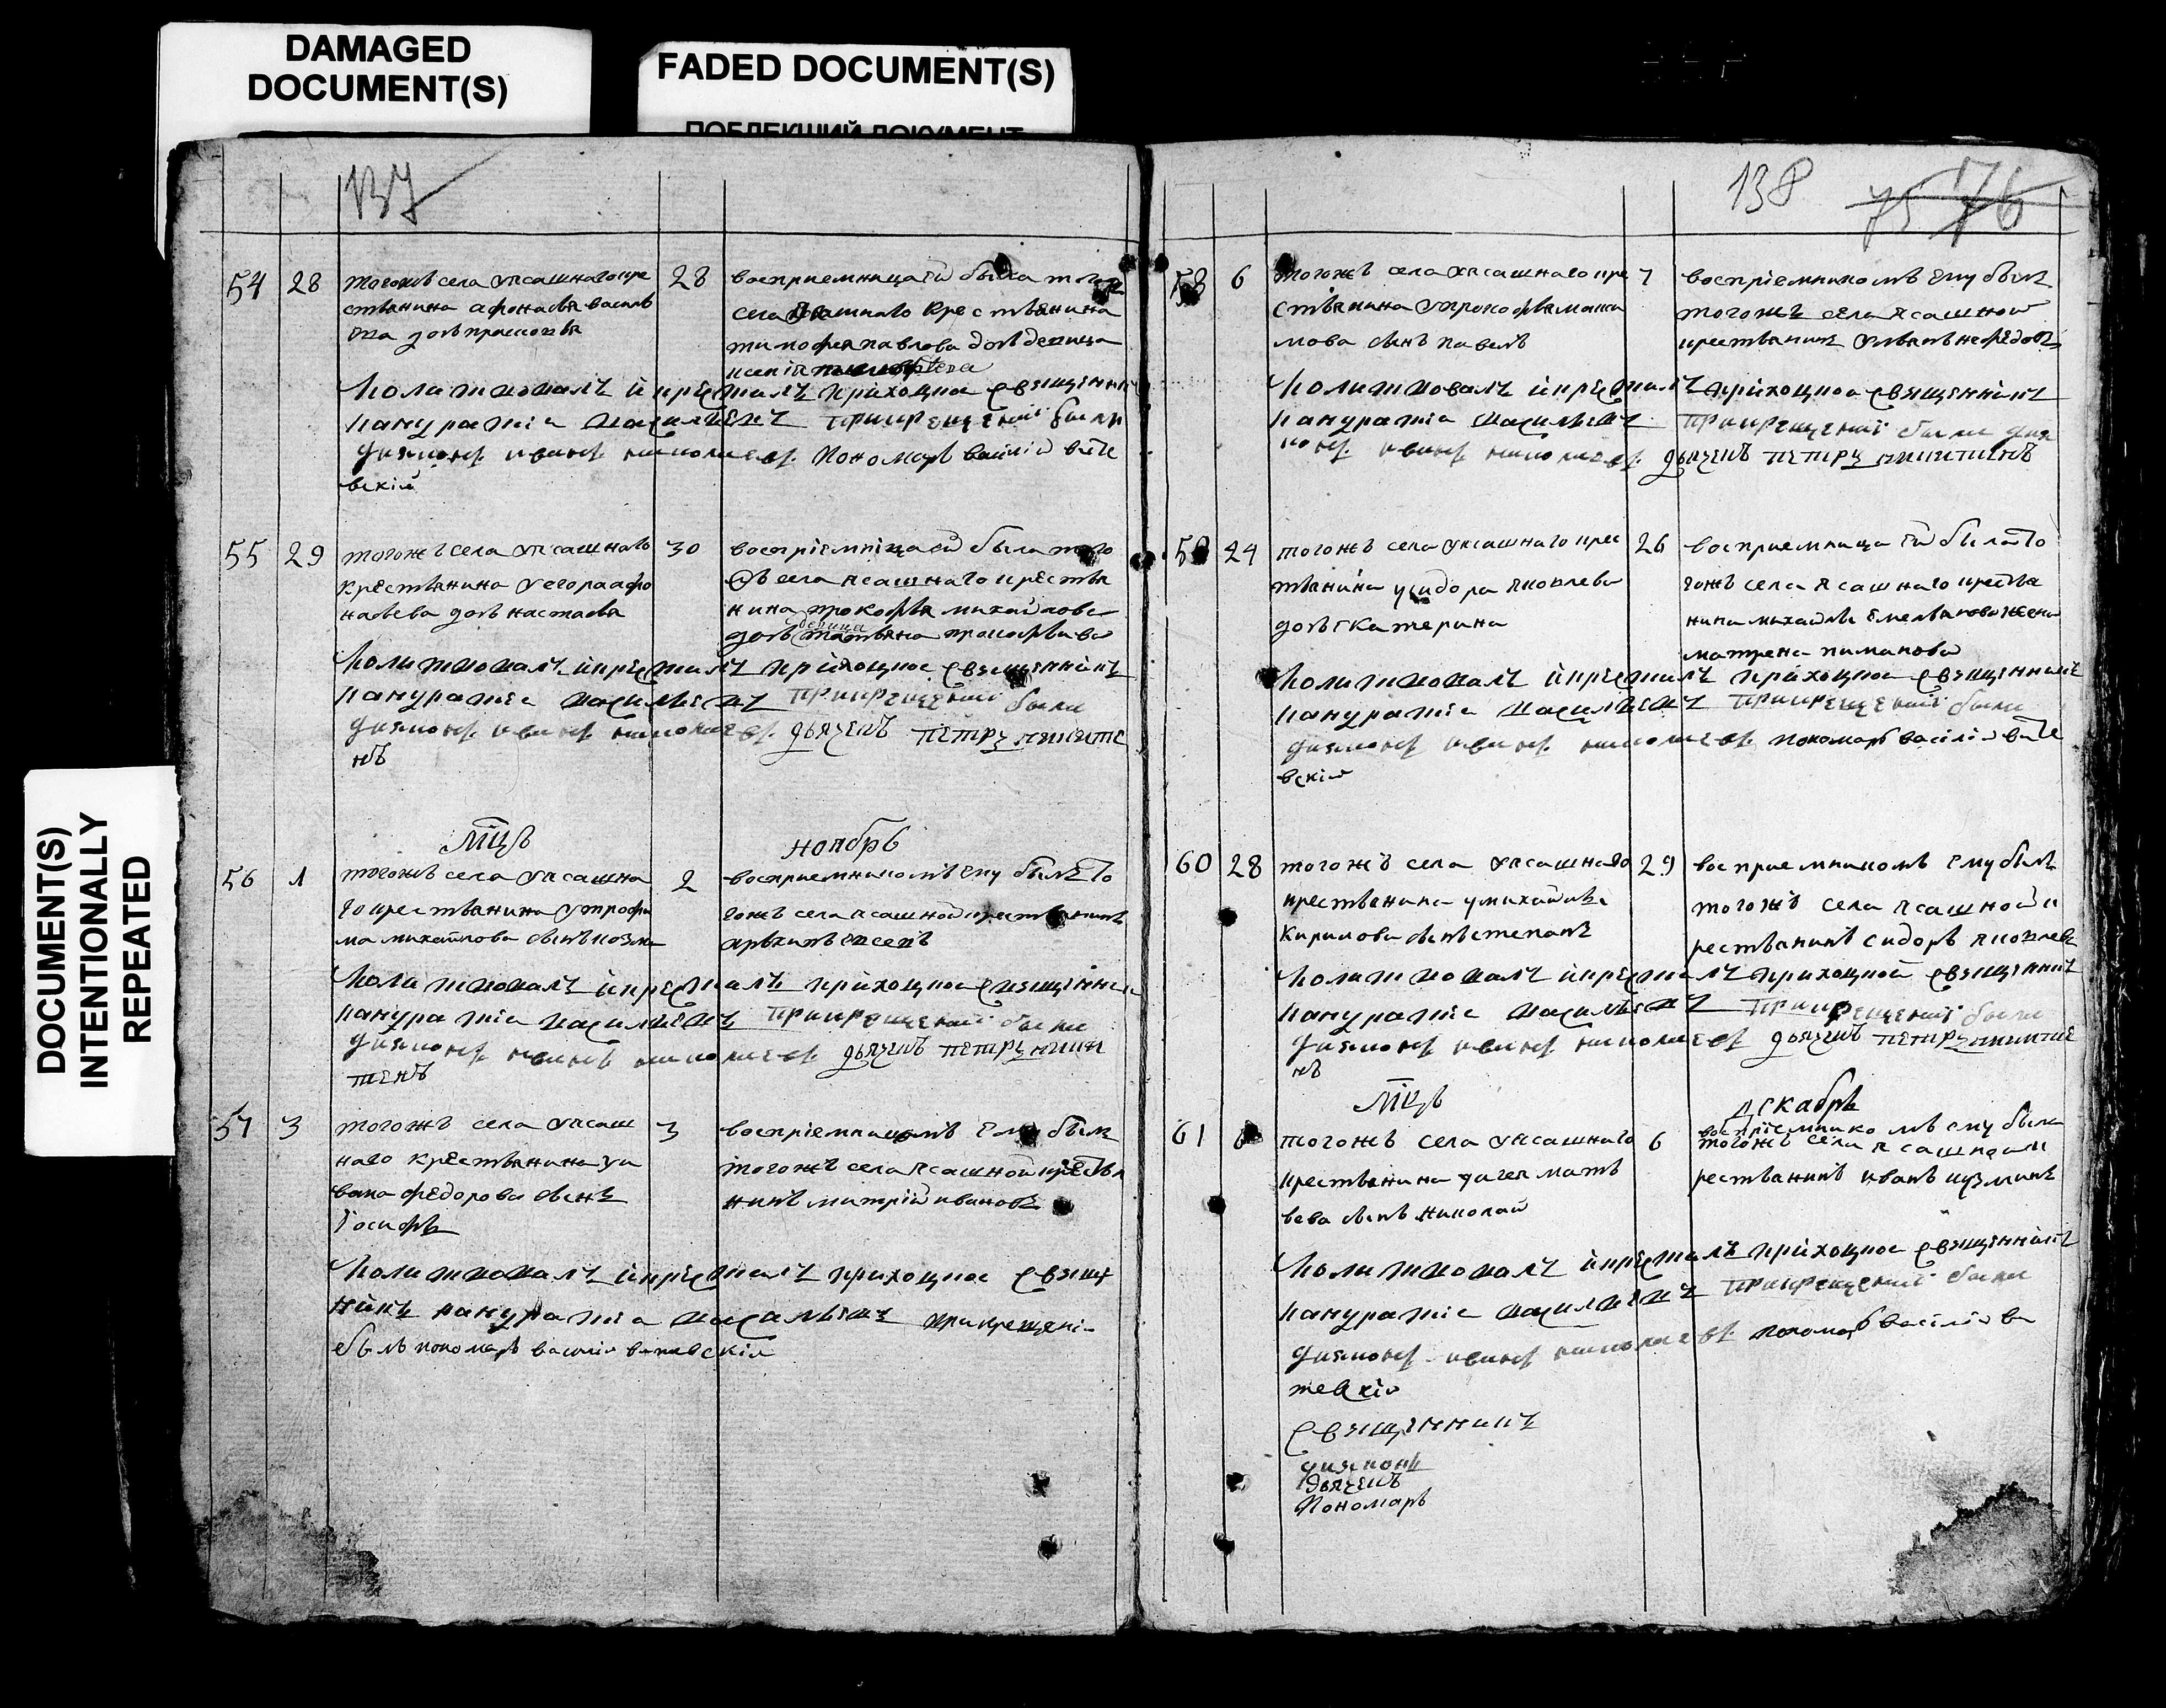 DAMAGED
DOCUMENT(S)
FADED DOCUMENT(S)
ПОБЛЕКШИЙ ДОКУМЕНТ
DOCUMENT(S)
INTENTIONALLY
REPEATED
137
54 28
тогожъ села ясашнаго кре
стьянина афонасья василь
ева дочь
28
восприемница ей была
села ясашнаго крестьянина
тимофея павлова дочь девица
молитвовалъ и крестилъ приходцкои священникъ
панкратеи василиевъ при крещении были
диаконъ иванъ николаевъ пономарь василий вите
вский
55 29
тогожъ села ясашнаго
крестьянина егора афо
насьева дочь настасья
30
восприемница ей была того
жъ села ясашнаго крестья
нина прокофья михайлова
девица
дочь татьяна прокофьева
молитвовалъ и крестилъ приходцкои священникъ
панкратеи василиевъ при крещении были
диаконъ иванъ николаевъ дьячекъ петръ никите
нъ
мцъ ноябрь
56 1
тогожъ села ясашна
го крестьянина трофи
ма михайлова сынъ козма
2
восприемникомъ ему былъ то
гожъ села ясашной крестьянинъ
молитвовалъ и крестилъ приходцкои священникъ
панкратеи василиевъ при крещении были
диаконъ иванъ николаевъ дьячекъ петръ ники
тенъ
57 3
тогожъ села ясаш
наго крестьянина и
вана федорова сынъ
иосифъ
3
восприемникомъ ему былъ
тогожъ села ясашной крестья
нинъ митрий ивановъ
молитвовалъ и крестилъ приходцкои свящ
никъ панкратеи василиевъ при крещении
былъ пономарь василий витевский
138 75 76
58 6
тогожъ села ясашнаго кре
стьянина прокофья макси
мова сынъ павелъ
7
восприемникомъ ему былъ
тогожъ села ясашной
крестьянинъ
молитвовалъ и крестилъ приходцкои священникъ
панкратеи василиевъ при крещении были диа
конъ иванъ николаевъ дьячекъ петръ никитинъ
24
тогожъ села ясашнаго крес
тьянина сидора яковлева
дочь катерина
26
восприемница ей была то
гожъ села ясашнаго крестья
нина михайлы емельянова жена
матрена
молитвовалъ и крестилъ приходцкои священникъ
панкратеи василиевъ при крещении были
диаконъ иванъ николаевъ пономарь василий вите
вский
60 28
тогожъ села ясашнаго
крестьянина михайлы
кирилова сынъ степанъ
29
восприемникомъ ему былъ
тогожъ села ясашной к
рестьянинъ сидоръ яковлевъ
молитвовалъ и крестилъ приходцкой священникъ
панкратеи василиевъ при крещении были
диаконъ иванъ николаевъ дьячекъ петръ никите
нъ
мцъ декабрь
61
тогожъ села ясашнаго
крестьянина матв
вева сынъ николай
6
восприемникомъ ему былъ
тогожъ села ясашной к
рестьянинъ иванъ кузминъ
молитвовалъ и крестилъ приходцкои священникъ
панкратеи василиевъ при крещении были
диаконъ иванъ николаевъ пономарь василий ви
тевский
священникъ
диаконъ
дьячекъ
пономарь